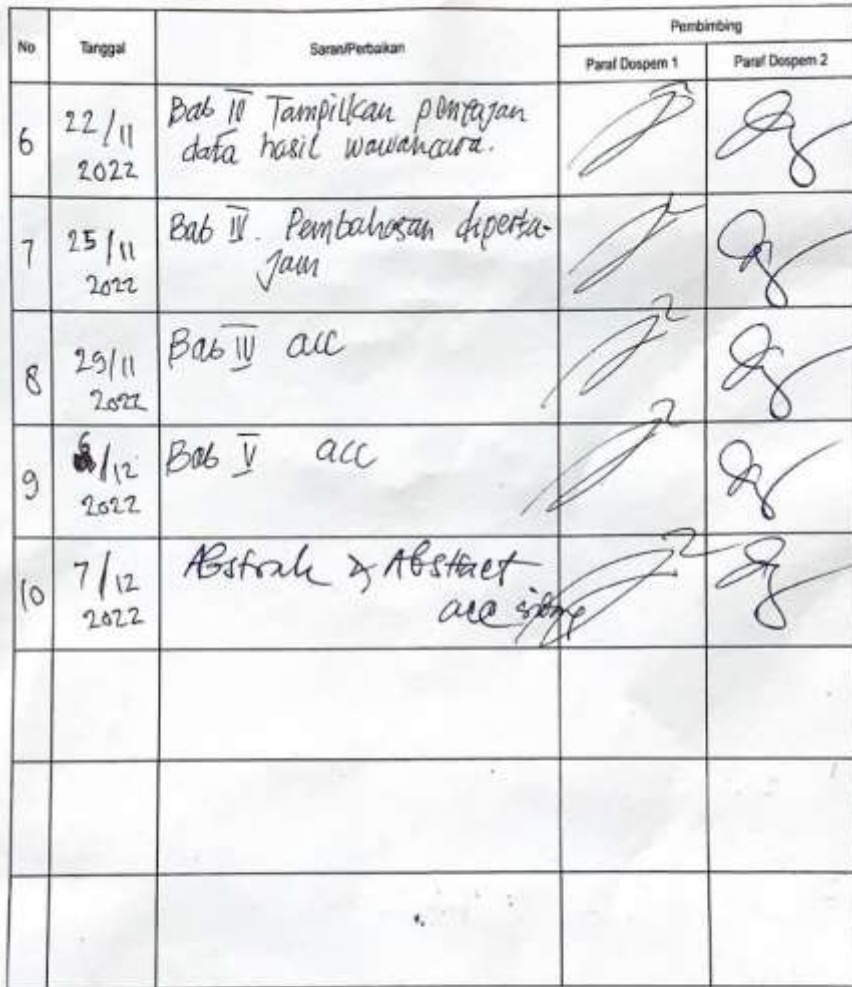 No Tanggal Saran/Perbaikan Pembimbing
Paraf Dospem 1 Paraf Dospem 2
6 22/11 2022 Bab IV Tampilkan penyajan
data hasil wawancara.
7 25/11 2022 Bab IV. Pembahasan diperta-
jam
8 29/11 2022 Bab IV acc
9 6/12 2022 Bab V acc
10 7/12 2022 Abstrak & Abstract
acc sidang